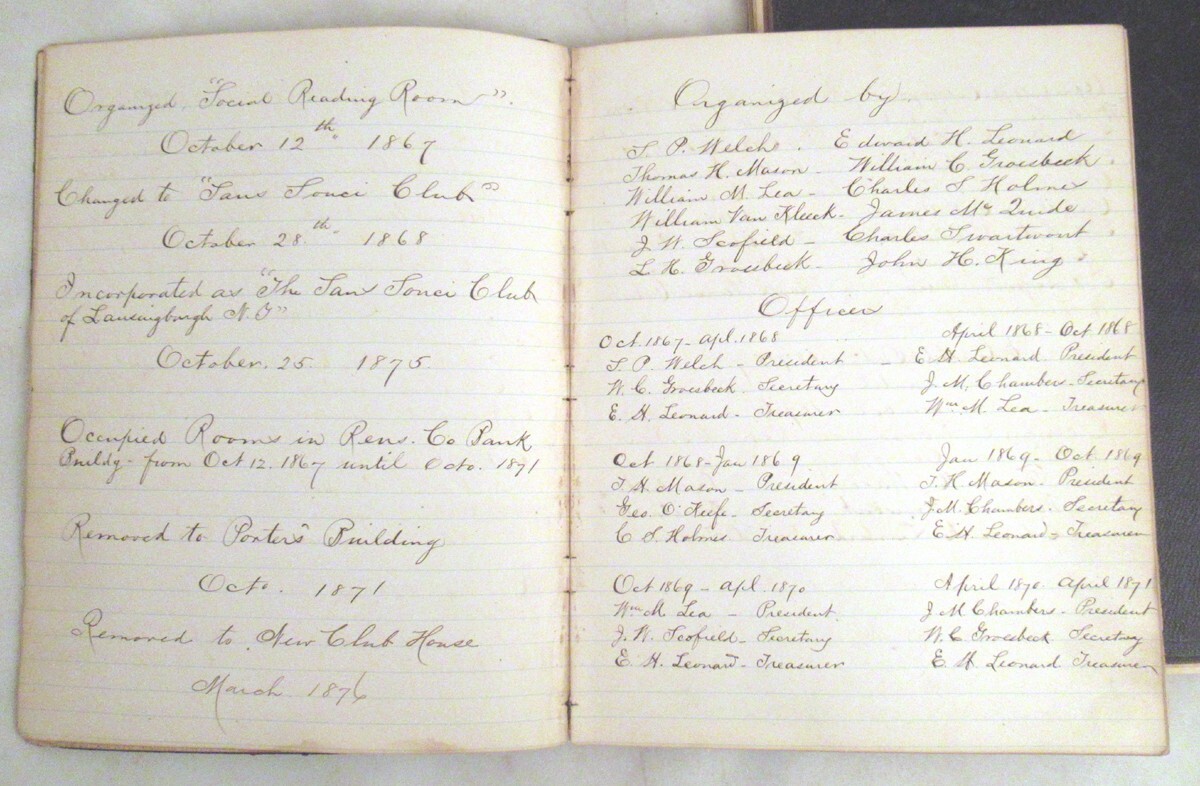 Organized "Social Reading Room".
October 12th 1867
Changed to "Sans Souci Club"
October 28th 1868
Incorporated as "The Sans Souci Club
of Lansingburgh N.Y"
October 25. 1875.
Occupied Rooms in Rens. Co Bank
Buildg - from Oct 12. 1867 until Octo. 1871
Removed to Porter's Building
Octo. 1871
Removed to New Club House
March 1876
Organized by.
S. P. Welch. Edward H. Leonard
Thomas H. Mason - William C. Groesbeck
William M. Lea - Charles S Holmes
William Van Kleeck - James Mc Quide
J. W. Scofield - Charles Swartwout
L. R. Groesbeck - John H. King
Officers
Oct. 1867 - Apl. 1868 April 1868 - Oct 1868
S. P. Welch - President - E. H. Leonard President
W. C. Groesbeck Secretary J. M. Chambers - Secretary
E. H. Leonard - Treasurer Wm M. Lea - Treasurer
Oct 1868 - Jan 1869 Jan 1869 - Oct. 1869
T. H. Mason - President T. H. Mason - President
Geo. O'Keefe - Secretary J. M. Chambers. Secretary
C S. Holmes Treasurer E. H. Leonard - Treasurer
Oct 1869 - Apl. 1870 April 1870. April 1871
Wm M. Lea - President J M Chambers - President
J. W. Scofield - Secretary W. C Groesbeck Secretary
E. H. Leonard - Treasurer E. H. Leonard Treasurer